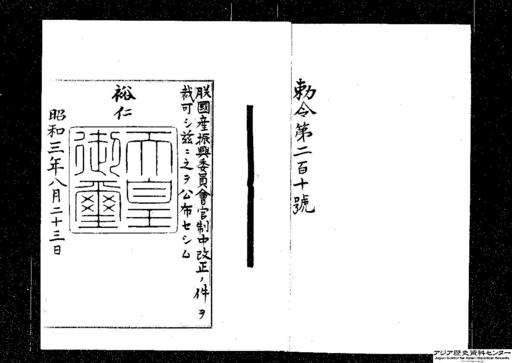 勅令第二百十號
朕國産振興委員會官制中改正ノ件ヲ
裁可シ玆ニ之ヲ公布セシム
裕仁
天皇
御璽
昭和三年八月二十三日
アジア歴史資料センター
Japan Center for Asian Historical Records